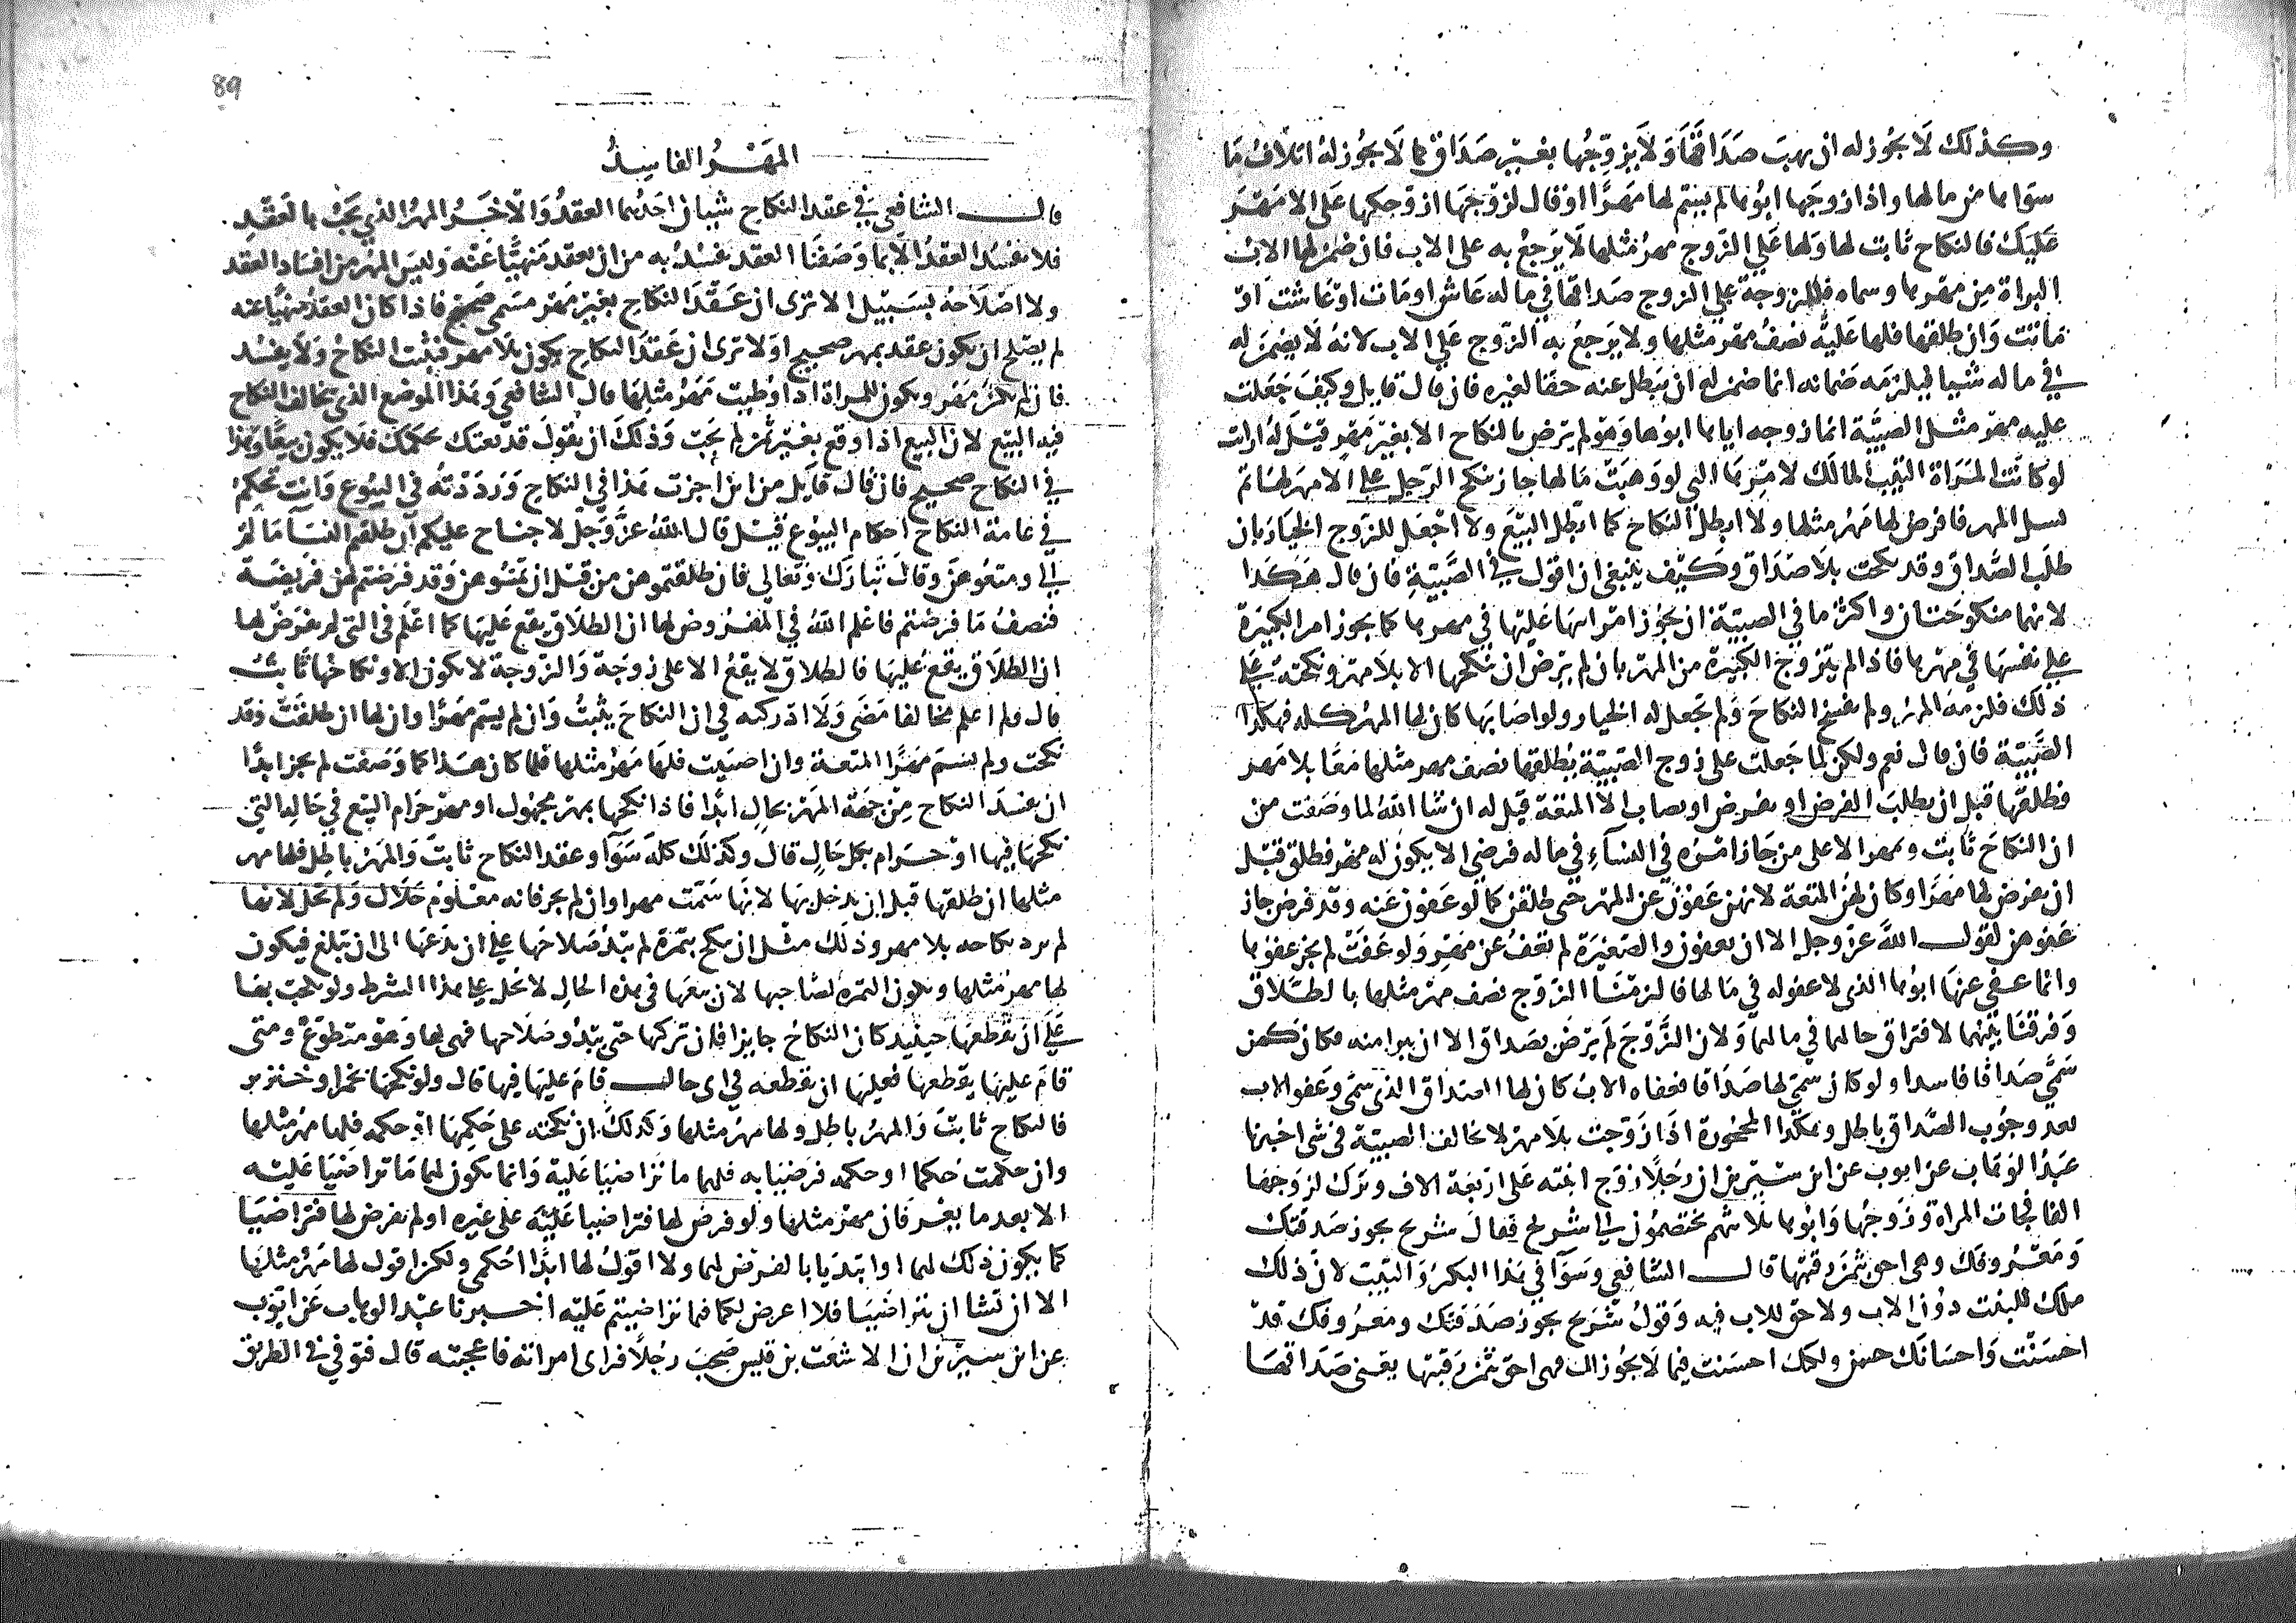 وكذلك لا يجوز له ان يهب صداقها ولا يزوجها بغير صداق كما لا يجوز له اتلاف ما
سواها من مالها واذا زوجها ابوها لم يسم لها مهرا او قال لزوجها ازوجكها على الا مهر
عليك فالنكاح ثابت لها ولها على الزوج مهر مثلها لا يرجع به على الاب فان ضمن لها الاب
البراة من مهرها وسماه فللزوجة على الزوج صداقها في ماله عاش او مات او عاشت او
ماتت وان طلقها فلها عليه نصف مهر مثلها ولا يرجع به الزوج على الاب لانه لا يضمن له
في ماله شيا فيلزمه ضمانه انما ضمن له ان يبطل عنه حقا لغيره فان قال قايل وكيف جعلت
عليه مهر مثل الصبية انما زوجه اياها ابوها وهو لم يرض بالنكاح الا بغير مهر قيل له ارايت
لو كانت المراة الثيب المالك لامرها التي لو وهبت مالها جاز ينكح الرجل على الا مهر لها ثم
نسل المهر فافرض لها مهر مثلها ولا ابطل النكاح كما ابطل البيع ولا اجعل للزوج الخيار بان
طلب الصداق وقد نكحت بلا صداق وكيف ينبغي ان اقول في الصبية فان قال هكذا
لانهما منكوحتان واكثر ما في الصبية ان يجوز امر ابيها عليها في مهرها كما يجوز امر الكبيرة
على نفسها في مهرها فاذا لم يتزوج الكبيرة من المهر بان لم يرض ان ينكحها الا بلا مهر ونكحته على
ذلك فلزمه المهر ولم يفسخ النكاح ولم تجعل له الخيار ولو اصابها كان لها المهر كله فهكذا
الصبية فان قال نعم ولكن لما جعلت على زوج الصبية يطلقها نصف مهر مثلها معا بلا مهر
فطلقها قبل ان يطلب الفرض او يفرض او يصاب الا المتعة قيل له ان شا الله لما وصفت من
ان النكاح ثابت ومهر الا على من جاز امره في النساء في ماله فرضي الا يكون له مهر فطلق قبل
ان يفرض لها مهرا وكان لهن المتعة لانهن عفون عن المهر حتى طلقن كما لو عفون عنه وقد فرض جاز
عفوهن لقول الله عز وجل الا ان يعفون والصغيرة لم تعف عن مهر ولو عفت لم يجز عفوها
وانما عفى عنها ابوها الذي لا عفو له في مالها فالزمنا الزوج نصف مهر مثلها بالطلاق
وفرقنا بينهما لافتراق حالهما في مالهما ولان الزوج لم يرض بصداق الا ان يبرا منه فكان كمن
سمى صداقا فاسدا ولو كان سمى لها صداقا فعفاه الاب كان لها الصداق الذي سمى وعفو الاب
بعد وجوب الصداق باطل وهكذا المحجورة اذا زوجت بلا مهر لا تخالف الصبية في شى اخبرنا
عبد الوهاب عن ايوب عن ابن سيرين ان رجلا زوج ابنته على اربعة الاف وترك لزوجها
الفا فجات المراة وزوجها وابوها ثلاثتهم تختصمون الى شريح فقال شريح يجوز صدقتك
ومعروفك وهى احق بثمن رقبتها قال الشافعي وسوا في هذا البكر والثيب لان ذلك
ملك للبنت دون الاب ولا حق للاب فيه وقول شريح يجوز صدقتك ومعروفك قد
احسنت واحسانك حسن ولكنك احسنت فيما لا يجوز لك فهى احق بثمن رقبتها يعنى صداقها
89
المهر الفاسد
قال الشافعي في عقد النكاح شيان احدهما العقد والاخر المهر الذي يجب بالعقد
فلا يفسد العقد الا بما وصفنا العقد يفسد به من ان يعقد منهيا عنه وليس المهر من افساد العقد
ولا اصلاحه بسبيل الا ترى ان عقد النكاح بغير مهر مسمى صحيح فاذا كان العقد منهيا عنه
لم يصلح ان يكون عقد بمهر صحيح اولا ترى ان عقد النكاح يكون بلا مهر فيثبت النكاح ولا يفسد
فان لم يكن مهر ويكون للمراة اذا وطيت مهر مثلها قال الشافعي وهذا الموضع الذي تخالف النكاح
فيه البيع لان البيع اذا وقع بغير ثمن لم يجب وذلك ان يقول قد بعتك بحكمك فلا يكون بيعا وهذا
في النكاح صحيح فان قال قايل من اين اجزت هذا في النكاح ورددته في البيوع وانت تحكم
في عامة النكاح احكام البيوع قيل قال الله عز وجل لا جناح عليكم ان طلقتم النسا ما لم
الى ومتعوهن وقال تبارك وتعالى فان طلقتموهن من قبل ان تمسوهن وقد فرضتم لهن فريضة
فنصف ما فرضتم فاعلم الله في المفروض لها ان الطلاق يقع عليها كما اعلم في التي لم يفرض لها
ان الطلاق يقع عليها فالطلاق لا يقع الا على زوجة والزوجة لا تكون الا ونكاحها ثابت
قال ولم اعلم مخالفا مضى ولا ادركته في ان النكاح يثبت وان لم يسم مهرا وان لها ان طلقت وقد
نكحت ولم يسم مهرا المتعة وان اصيبت فلها مهر مثلها فلما كان هذا كما وصفت لم يجز ابدا
ان يفسد النكاح من جهة المهر بحال ابدا فاذا نكحها بمهر مجهول او مهر حرام البيع في حاله التي
نكحها فيها او حرام بكل حال قال وكذلك كله سوآ وعقد النكاح ثابت والمهر باطل فلها مهر
مثلها ان طلقها قبل ان يدخل بها لانها سمت مهرا وان لم يجز فانه معلوم حلال ولم يحل لانها
لم ترد نكاحه بلا مهر وذلك مثل ان ينكح بثمرة لم يبد صلاحها على ان يدعها الى ان تبلغ فيكون
لها مهر مثلها وتكون الثمره لصاحبها لان بيعها في هذه الحال لا تحل على هذا الشرط ولو نكحت بها
على ان يقطعها حينيذ كان النكاح جايزا فان تركها حتى يبدو صلاحها فهى لها وهو متطوع ومتى
قام عليها يقطعها فعليها ان يقطعه في اى حال قام عليها فيها قال ولو نكحها بخمر او خنزير
فالنكاح ثابت والمهر باطل ولها مهر مثلها وكذلك ان نكحته على حكمها او حكمه فلها مهر مثلها
وان حكمت حكما او حكمه فرضيا به فلهما ما تراضيا عليه وانما يكون لهما ما تراضيا عليه
الا بعد ما يعرفان مهر مثلها ولو فرض لها فتراضيا عليه على غيره او لم يفرض لها فتراضيا
كما يكون ذلك لهما او ابتديا بالفرض لهما ولا اقول لها ابدا احكمى ولكن اقول لها مهر مثلها
الا ان تشا ان يتراضيا فلا اعرض لكما فيما تراضيتم عليه اخبرنا عبد الوهاب عن ايوب
عن ابن سيرين ان الاشعث بن قيس صحب رجلا فراى امراته فاعجبته قال فتوفى في الطريق